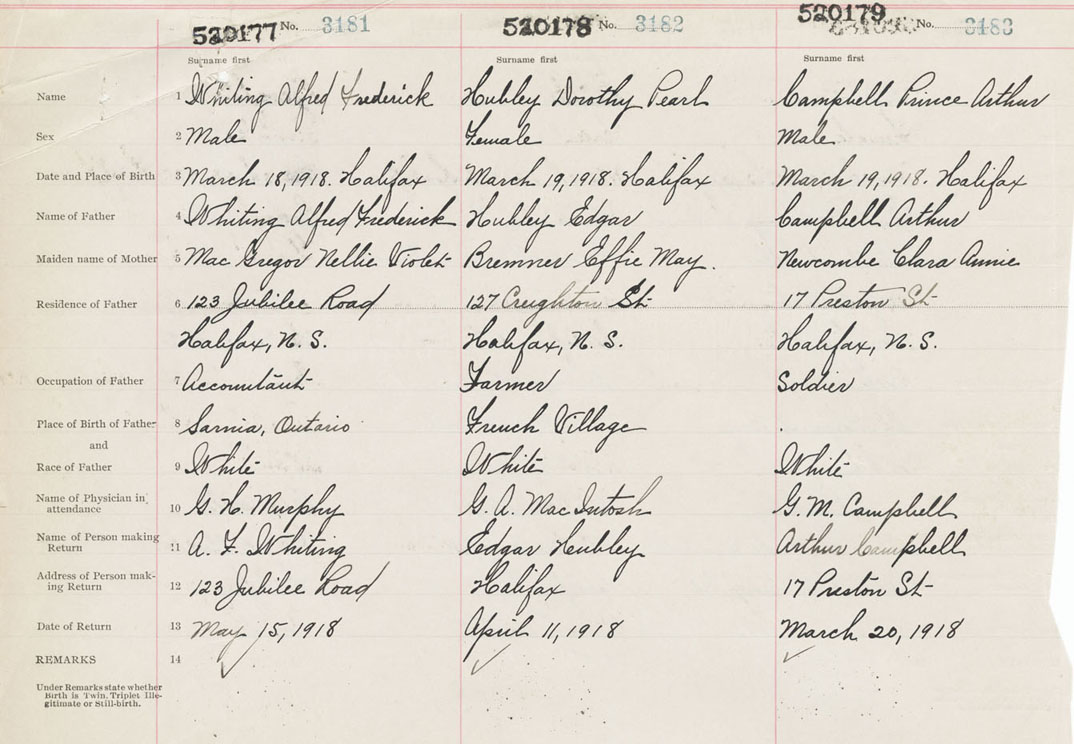 520177 No. 3181 520178 No. 3182 520179 No. 3183
Surname first Surname first Surname first
Name 1 Whiting Alfred Frederick Hubley Dorothy Pearl Campbell Prince Arthur
Sex 2 Male Female Male
Date and Place of Birth 3 March 18, 1918. Halifax March 19, 1918. Halifax March 19, 1918. Halifax
Name of Father 4 Whiting Alfred Frederick Hubley Edgar Campbell Arthur
Maiden name of Mother 5 Mac Gregor Nellie Violet Bremner Effie May. Newcombe Clara Annie
Residence of Father 6 123 Jubilee Road 127 Creighton St 17 Preston St
Halifax, N. S. Halifax, N. S. Halifax, N. S.
Occupation of Father 7 Accountant Farmer Soldier
Place of Birth of Father 8 Sarnia, Ontario French Village
and
Race of Father 9 White White White
Name of Physician in attendance 10 G. H. Murphy G. A. Mac Intosh G. M. Campbell
Name of Person making Return 11 A. F. Whiting Edgar Hubley Arthur Campbell
Address of Person mak-ing Return 12 123 Jubilee Road Halifax 17 Preston St
Date of Return 13 May 15, 1918 April 11, 1918 March 20, 1918
REMARKS 14
Under Remarks state whether
Birth is Twin, Triplet Ille-
gitimate or Still-birth.